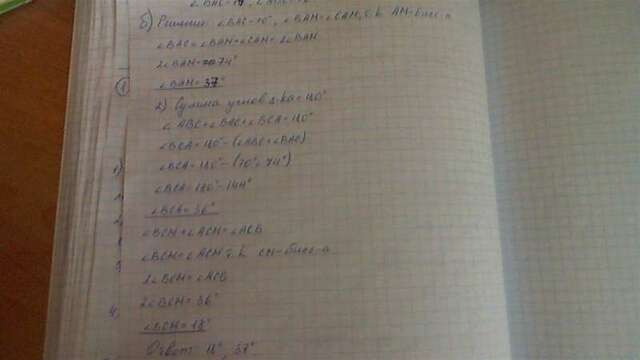 б) Решение: ∠BAC=70°, ∠BAM=∠CAM, т.к AM-бисс-а
∠BAC=∠BAM+∠CAM=2∠BAM
2∠BAM=74°
∠BAM=37°
2) Сумма углов =180°
∠ABC+∠BAC+∠BCA=180°
∠BCA=180°-(∠ABC+∠BAC)
∠BCA=180°-(70°+74°)
∠BCA=180°-144°
∠BCA=36°
∠BCM+∠ACM=∠ACB
∠BCM=∠ACM т.к CM-бисс-а
2∠BCM=∠ACB
2∠BCM=36°
∠BCM=18°
Ответ: 18°, 37°